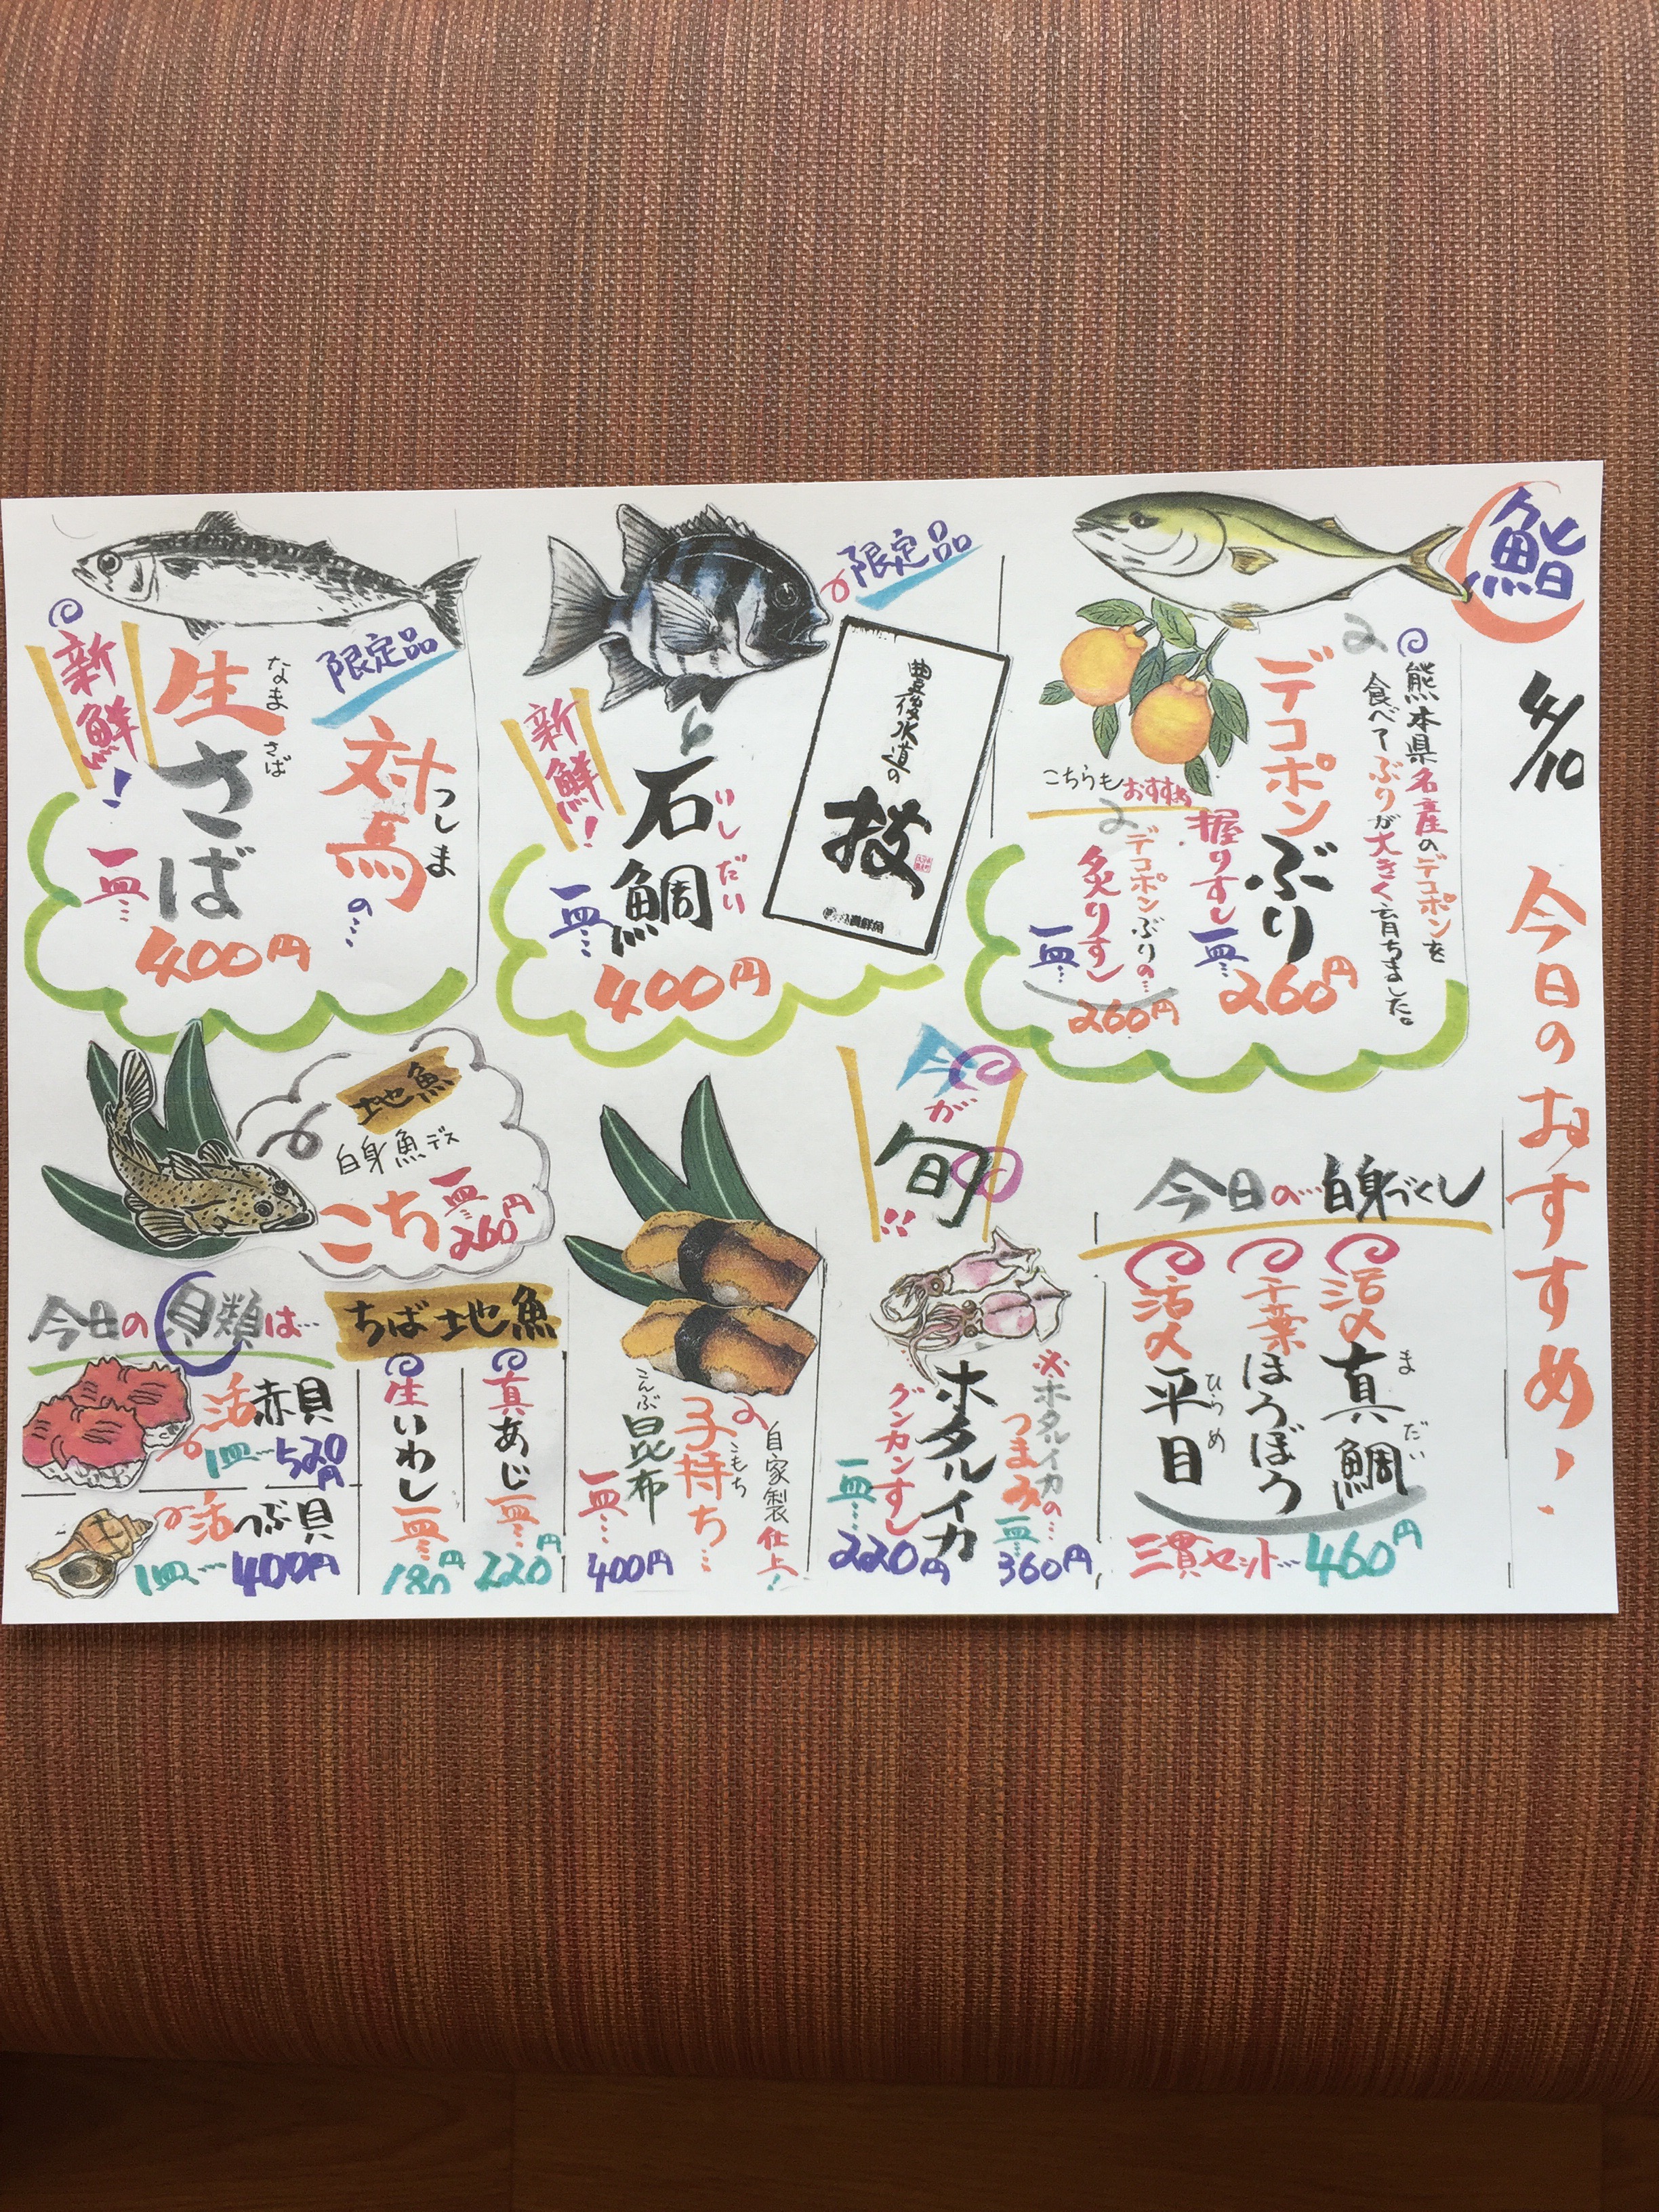 鮨
4/10
今日のおすすめ!
熊本県名産のデコポンを
食べてぶりが大きく育ちました。
デコポンぶり
握りすし一皿…
260円
こちらもおすすめ
デコポンぶりの…
炙りすし
一皿…
260円
限定品
豊後水道の
技
新鮮!
石鯛
いしだい
一皿…
400円
限定品
対馬の…
つしま
生さば
なまさば
新鮮!
一皿…
400円
今日の…白身づくし
活〆真鯛
まだい
千葉ほうぼう
活〆平目
ひらめ
三貫セット…460円
今が旬!!
※ホタルイカの…
つまみ一皿…
360円
ホタルイカ
グンカンすし
一皿…
220円
自家製仕上!
子持ち…
こもち
昆布
こんぶ
一皿…
400円
地魚
白身魚デス
こち
一皿…
260円
ちば地魚
真あじ
一皿…
220円
生いわし
一皿…
180円
今日の貝類は…
活赤貝
1皿…520円
活つぶ貝
1皿…400円